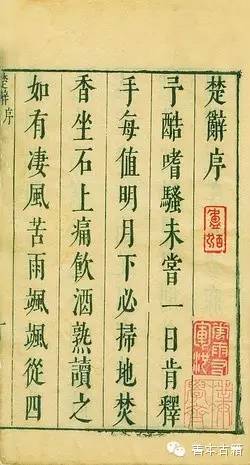 楚辭序
予酷嗜騷未嘗一日肯釋
手每值明月下必掃地焚
香坐石上痛飲酒熟讀之
如有凄風苦雨颯颯從四
楚辭 序
善本古籍